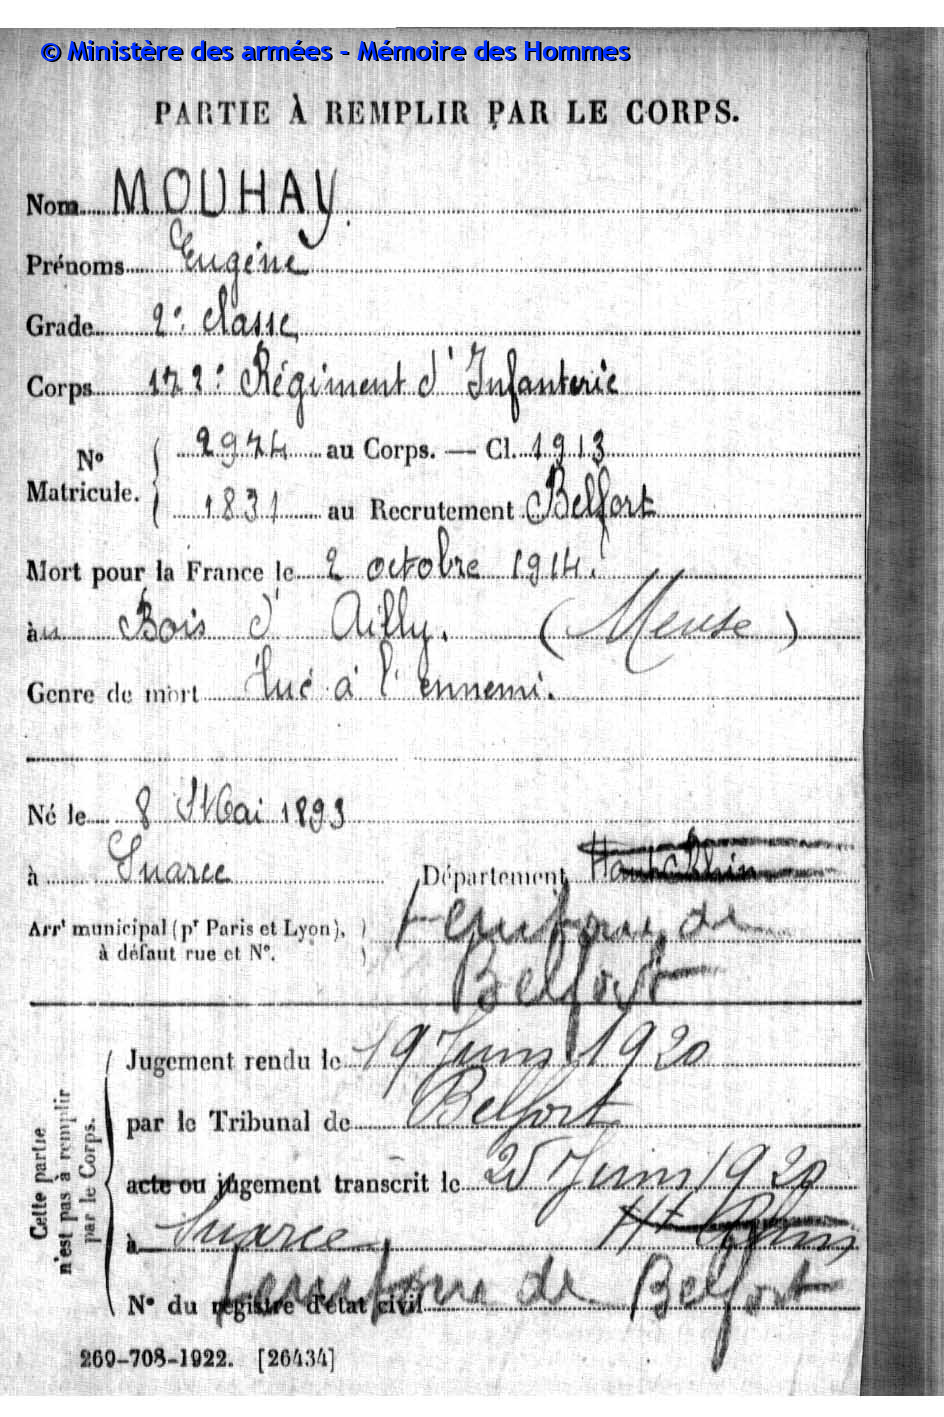 © Ministère des armées - Mémoire des Hommes
PARTIE À REMPLIR PAR LE CORPS.
Nom MOUHAY.
Prénoms Eugène
Grade 2e classe
Corps 172e Régiment d'Infanterie
No Matricule. 2974 au Corps. — Cl. 1913
1831 au Recrutement Belfort
Mort pour la France le 2 octobre 1914.
au Bois d'Ailly. (Meuse)
Genre de mort Tué à l'ennemi.
Né le 8 Mai 1893
à Suarce Département Haut-Rhin
Arrt municipal (pr Paris et Lyon), à défaut rue et No. Territoire de
Belfort
Cette partie n'est pas à remplir par le Corps.
Jugement rendu le 19 Juin 1920
par le Tribunal de Belfort
acte ou jugement transcrit le 25 Juin 1920
à Suarce Ht Rhin
Territoire de Belfort
No du registre d'état civil
269-708-1922. [26434]